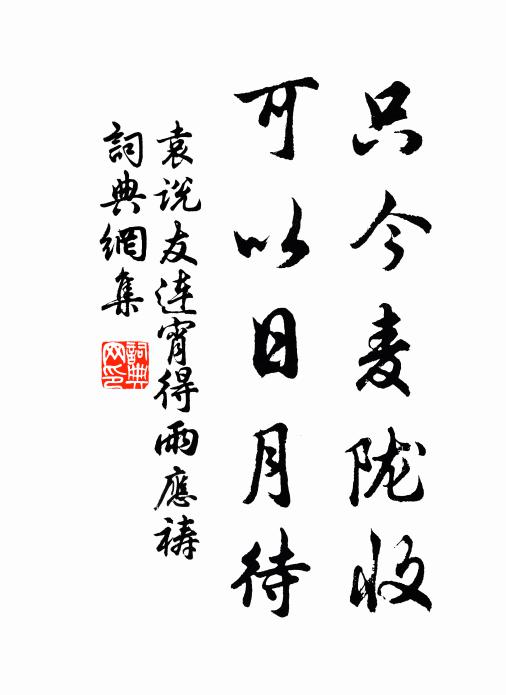 只今麦陇收
可以日月待
袁说友连宵得雨應祷
詞典網集
詞典網印